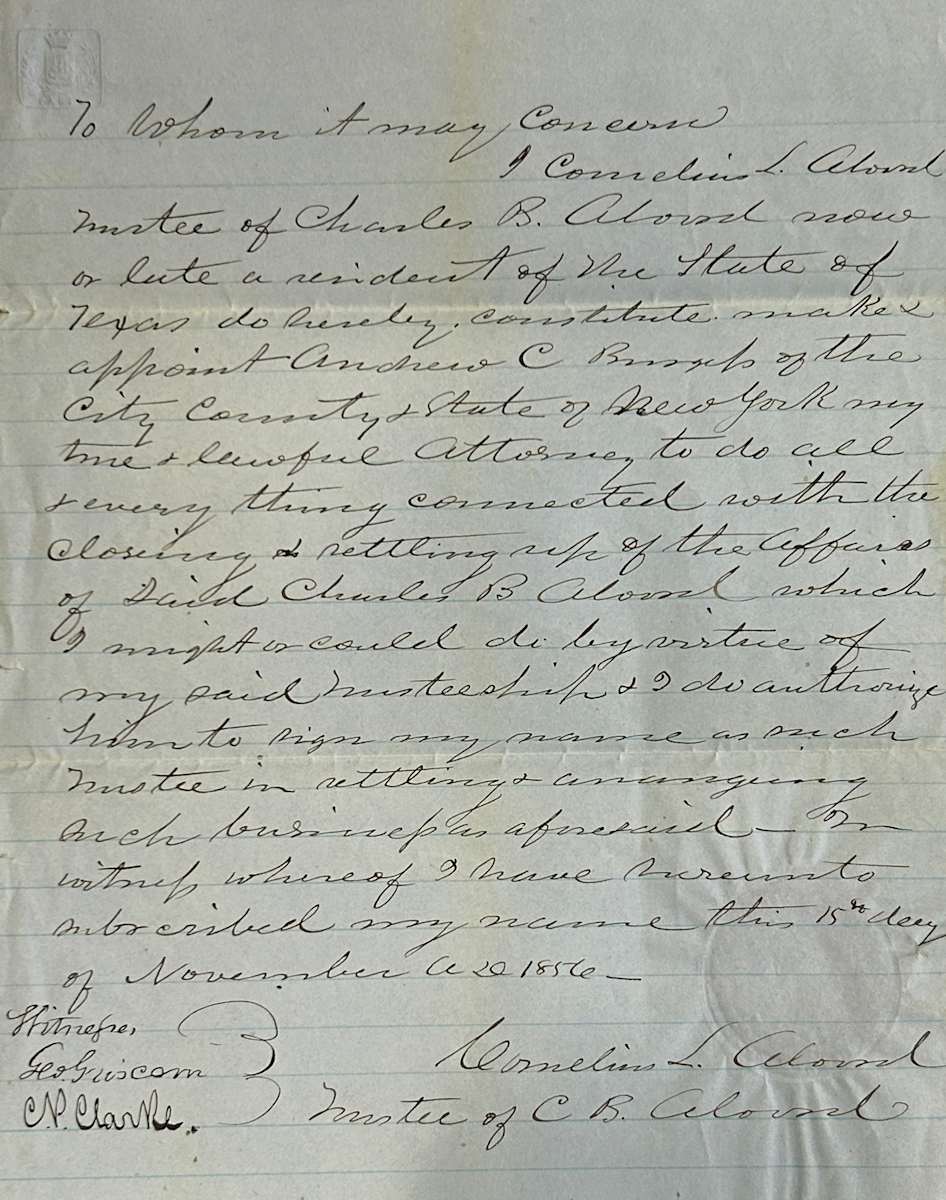 To Whom it may Concern
I Cornelius L. Alvord
Trustee of Charles B. Alvord now
or late a resident of the State of
Texas do hereby constitute make &
appoint Andrew C Burgess of the
City County & State of New York my
true & lawful Attorney to do all
& every thing connected with the
closing & settling up of the Affairs
of said Charles B Alvord which
I might or could do by virtue of
my said Trusteeship & I do authorize
him to sign my name as such
Trustee in settling & arranging
such business as aforesaid — In
witness whereof I have hereunto
subscribed my name this 15th day
of November A D 1856 —
Witnesses
Geo. Griscom
C.P. Clarke.
Cornelius L. Alvord
Trustee of C B. Alvord